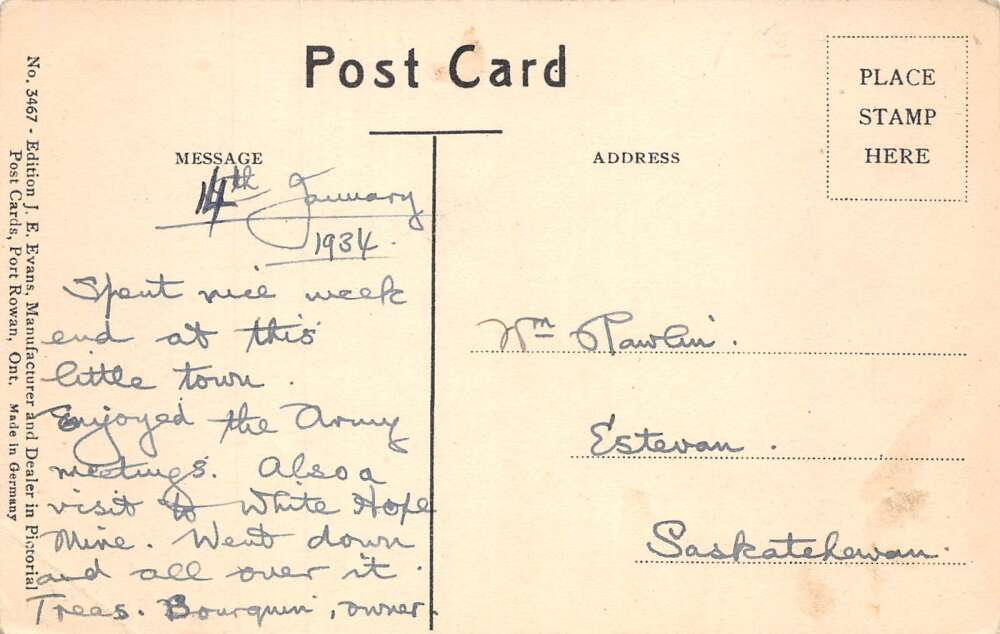 Post Card
PLACE
STAMP
HERE
MESSAGE
ADDRESS
14th January
1934.
Spent nice week
end at this
little town.
Enjoyed the Army
meetings. Also a
visit to White Hope
Mine. Went down
and all over it.
Treas. Bourquin, owner.
Wm Rawlin.
Estevan.
Saskatchewan.
No. 3467 - Edition J. E. Evans, Manufacturer and Dealer in Pictorial
Post Cards, Port Rowan, Ont. Made in Germany